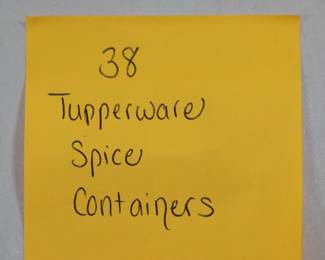 38
Tupperware
Spice
Containers